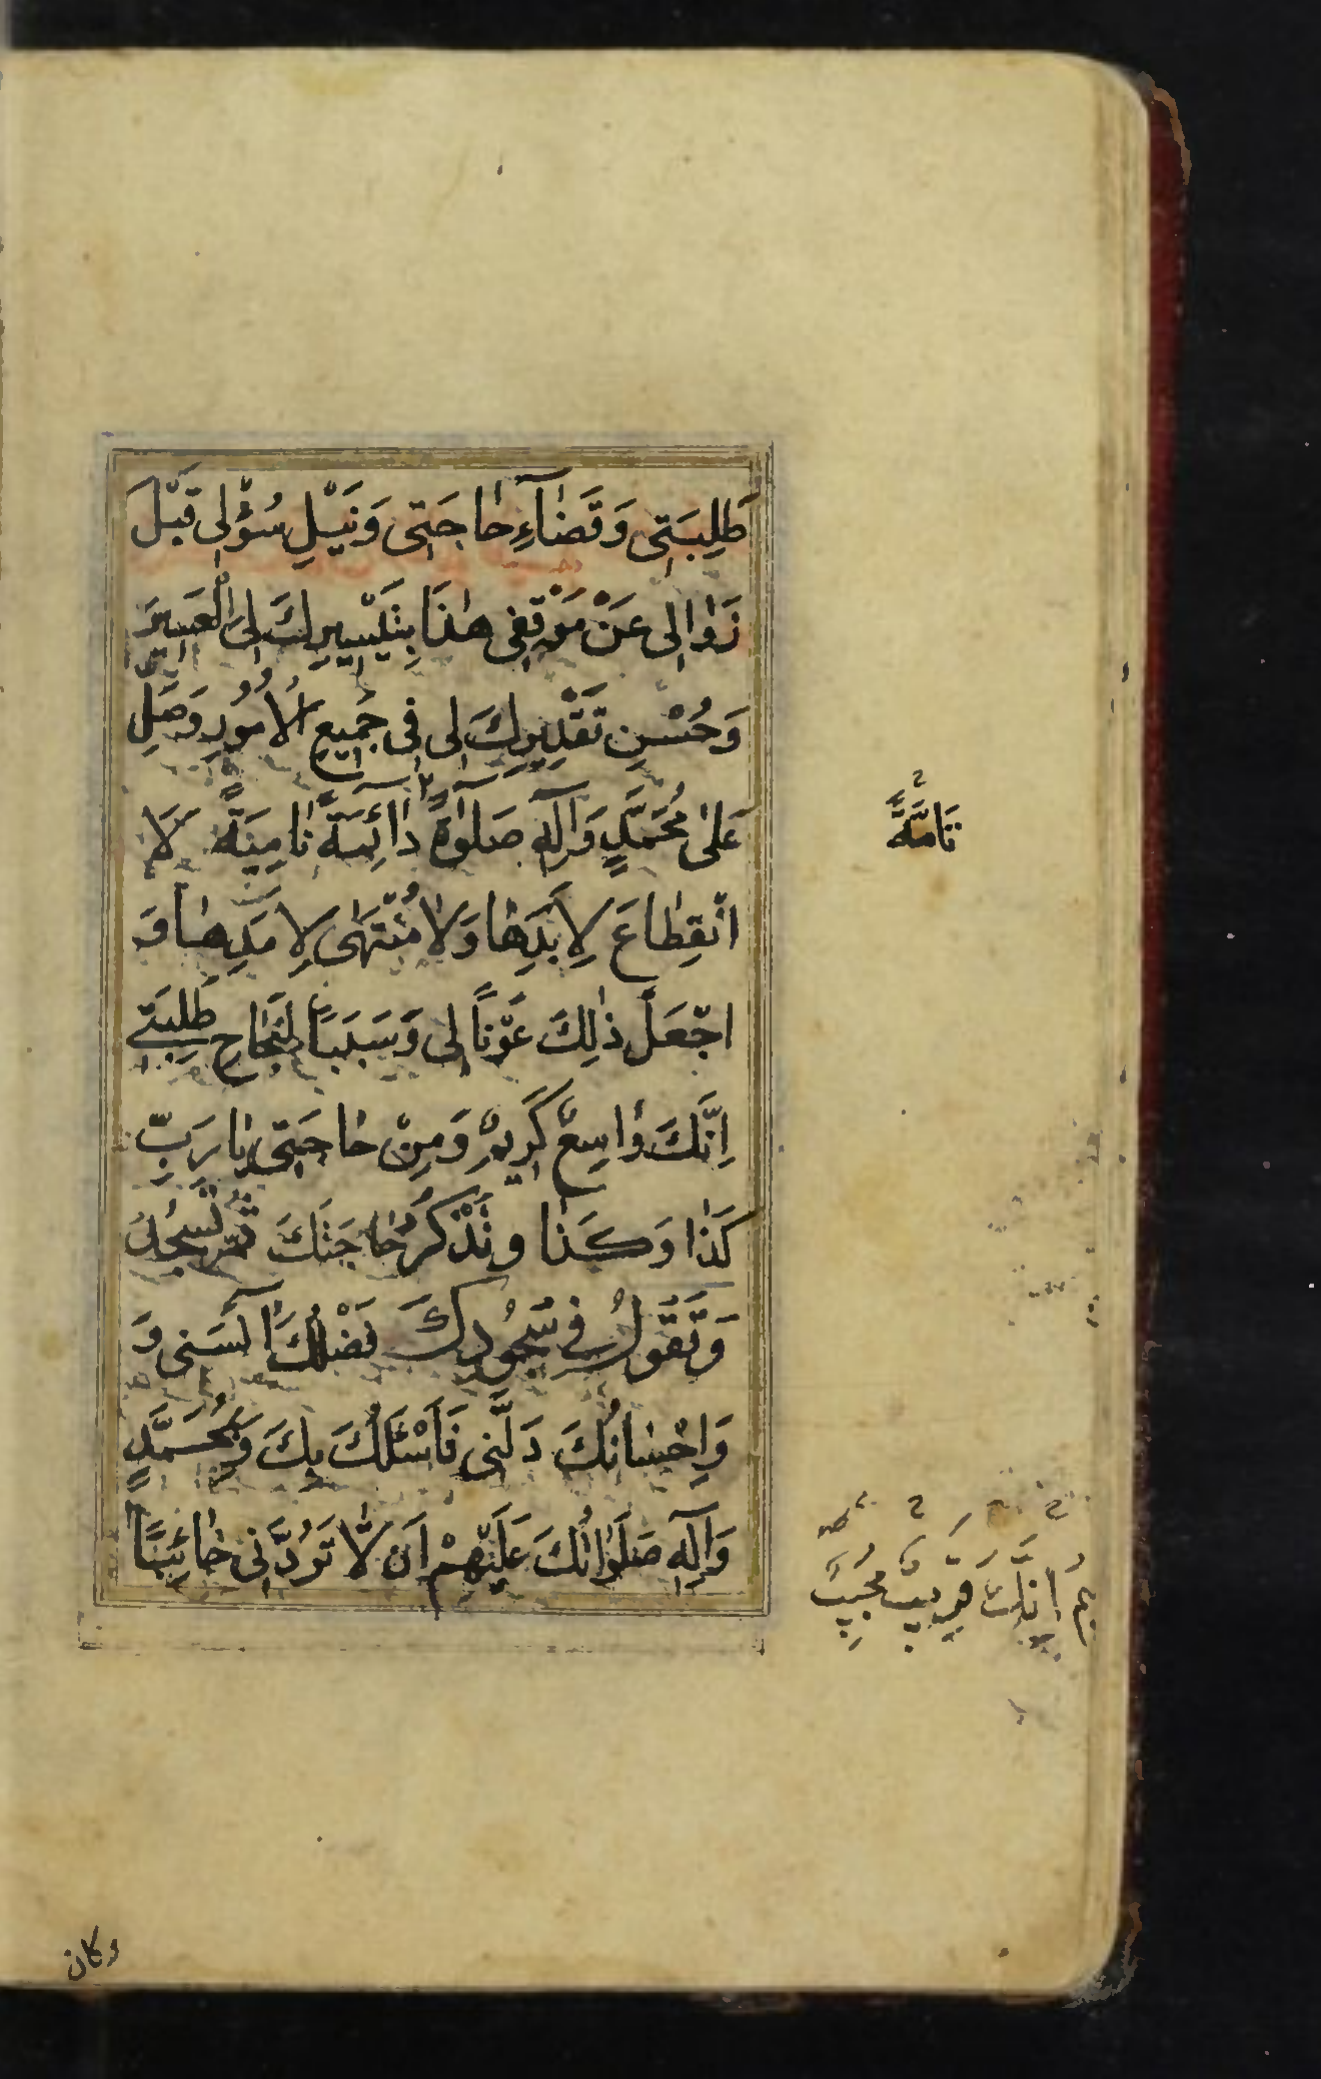 طَلِبَتِى وَقَضَآءِ حَاجَتِى وَنَيْلِ سُؤْلِى قَبْلَ
زَوَالِى عَنْ مَوْقِفِى هٰذَا بِتَيْسِيرِكَ لِىَ الْعَسِيرَ
وَحُسْنِ تَقْدِيرِكَ لِى فِى جَمِيعِ الْاُمُورِ وَصَلِّ
عَلٰى مُحَمَّدٍ وَاٰلِهِ صَلٰوةً دَآئِمَةً نَامِيَةً لَا
انْقِطَاعَ لِاَبَدِهَا وَلَا مُنْتَهٰى لِاَمَدِهَا وَ
اجْعَلْ ذٰلِكَ عَوْنًا لِى وَسَبَبًا لِنَجَاحِ طَلِبَتِى
اِنَّكَ وَاسِعٌ كَرِيمٌ وَمِنْ حَاجَتِى يَا رَبِّ
كَذَا وَكَذَا وَتَذْكُرُ حَاجَتَكَ ثُمَّ تَسْجُدُ
وَتَقُولُ فِى سُجُودِكَ فَضْلُكَ اٰنَسَنِى وَ
وَاِحْسَانُكَ دَلَّنِى فَاَسْئَلُكَ بِكَ وَبِمُحَمَّدٍ
وَاٰلِهِ صَلَوَاتُكَ عَلَيْهِمْ اَنْ لَّا تَرُدَّنِى خَائِبًا
تَامَّةً
اِنَّكَ قَرِيبٌ مُجِيبٌ
وكان